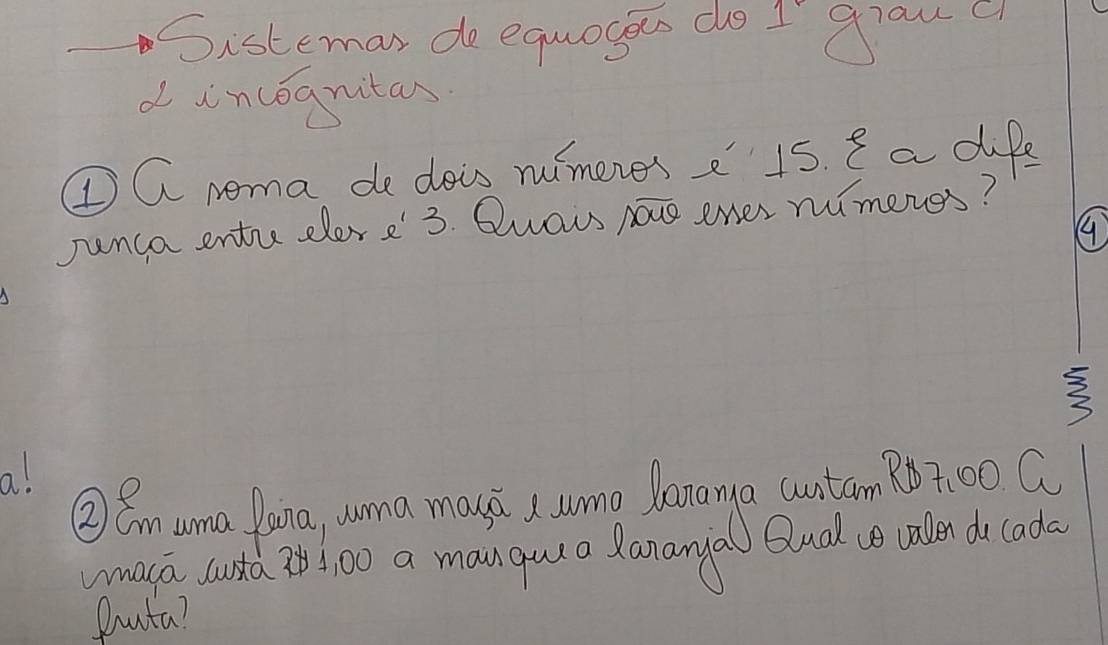 Sistemas de equações do 1º grau c/
2 incógnitas.
① A soma de dois números é 15. E a dife
rença entre eles é 3. Quais são esses números?
④
a!
② Em uma feira, uma maçã e uma laranja custam R$ 7,00. A
maçã custa R$ 1,00 a mais que a laranja. Qual o valor de cada
fruta?